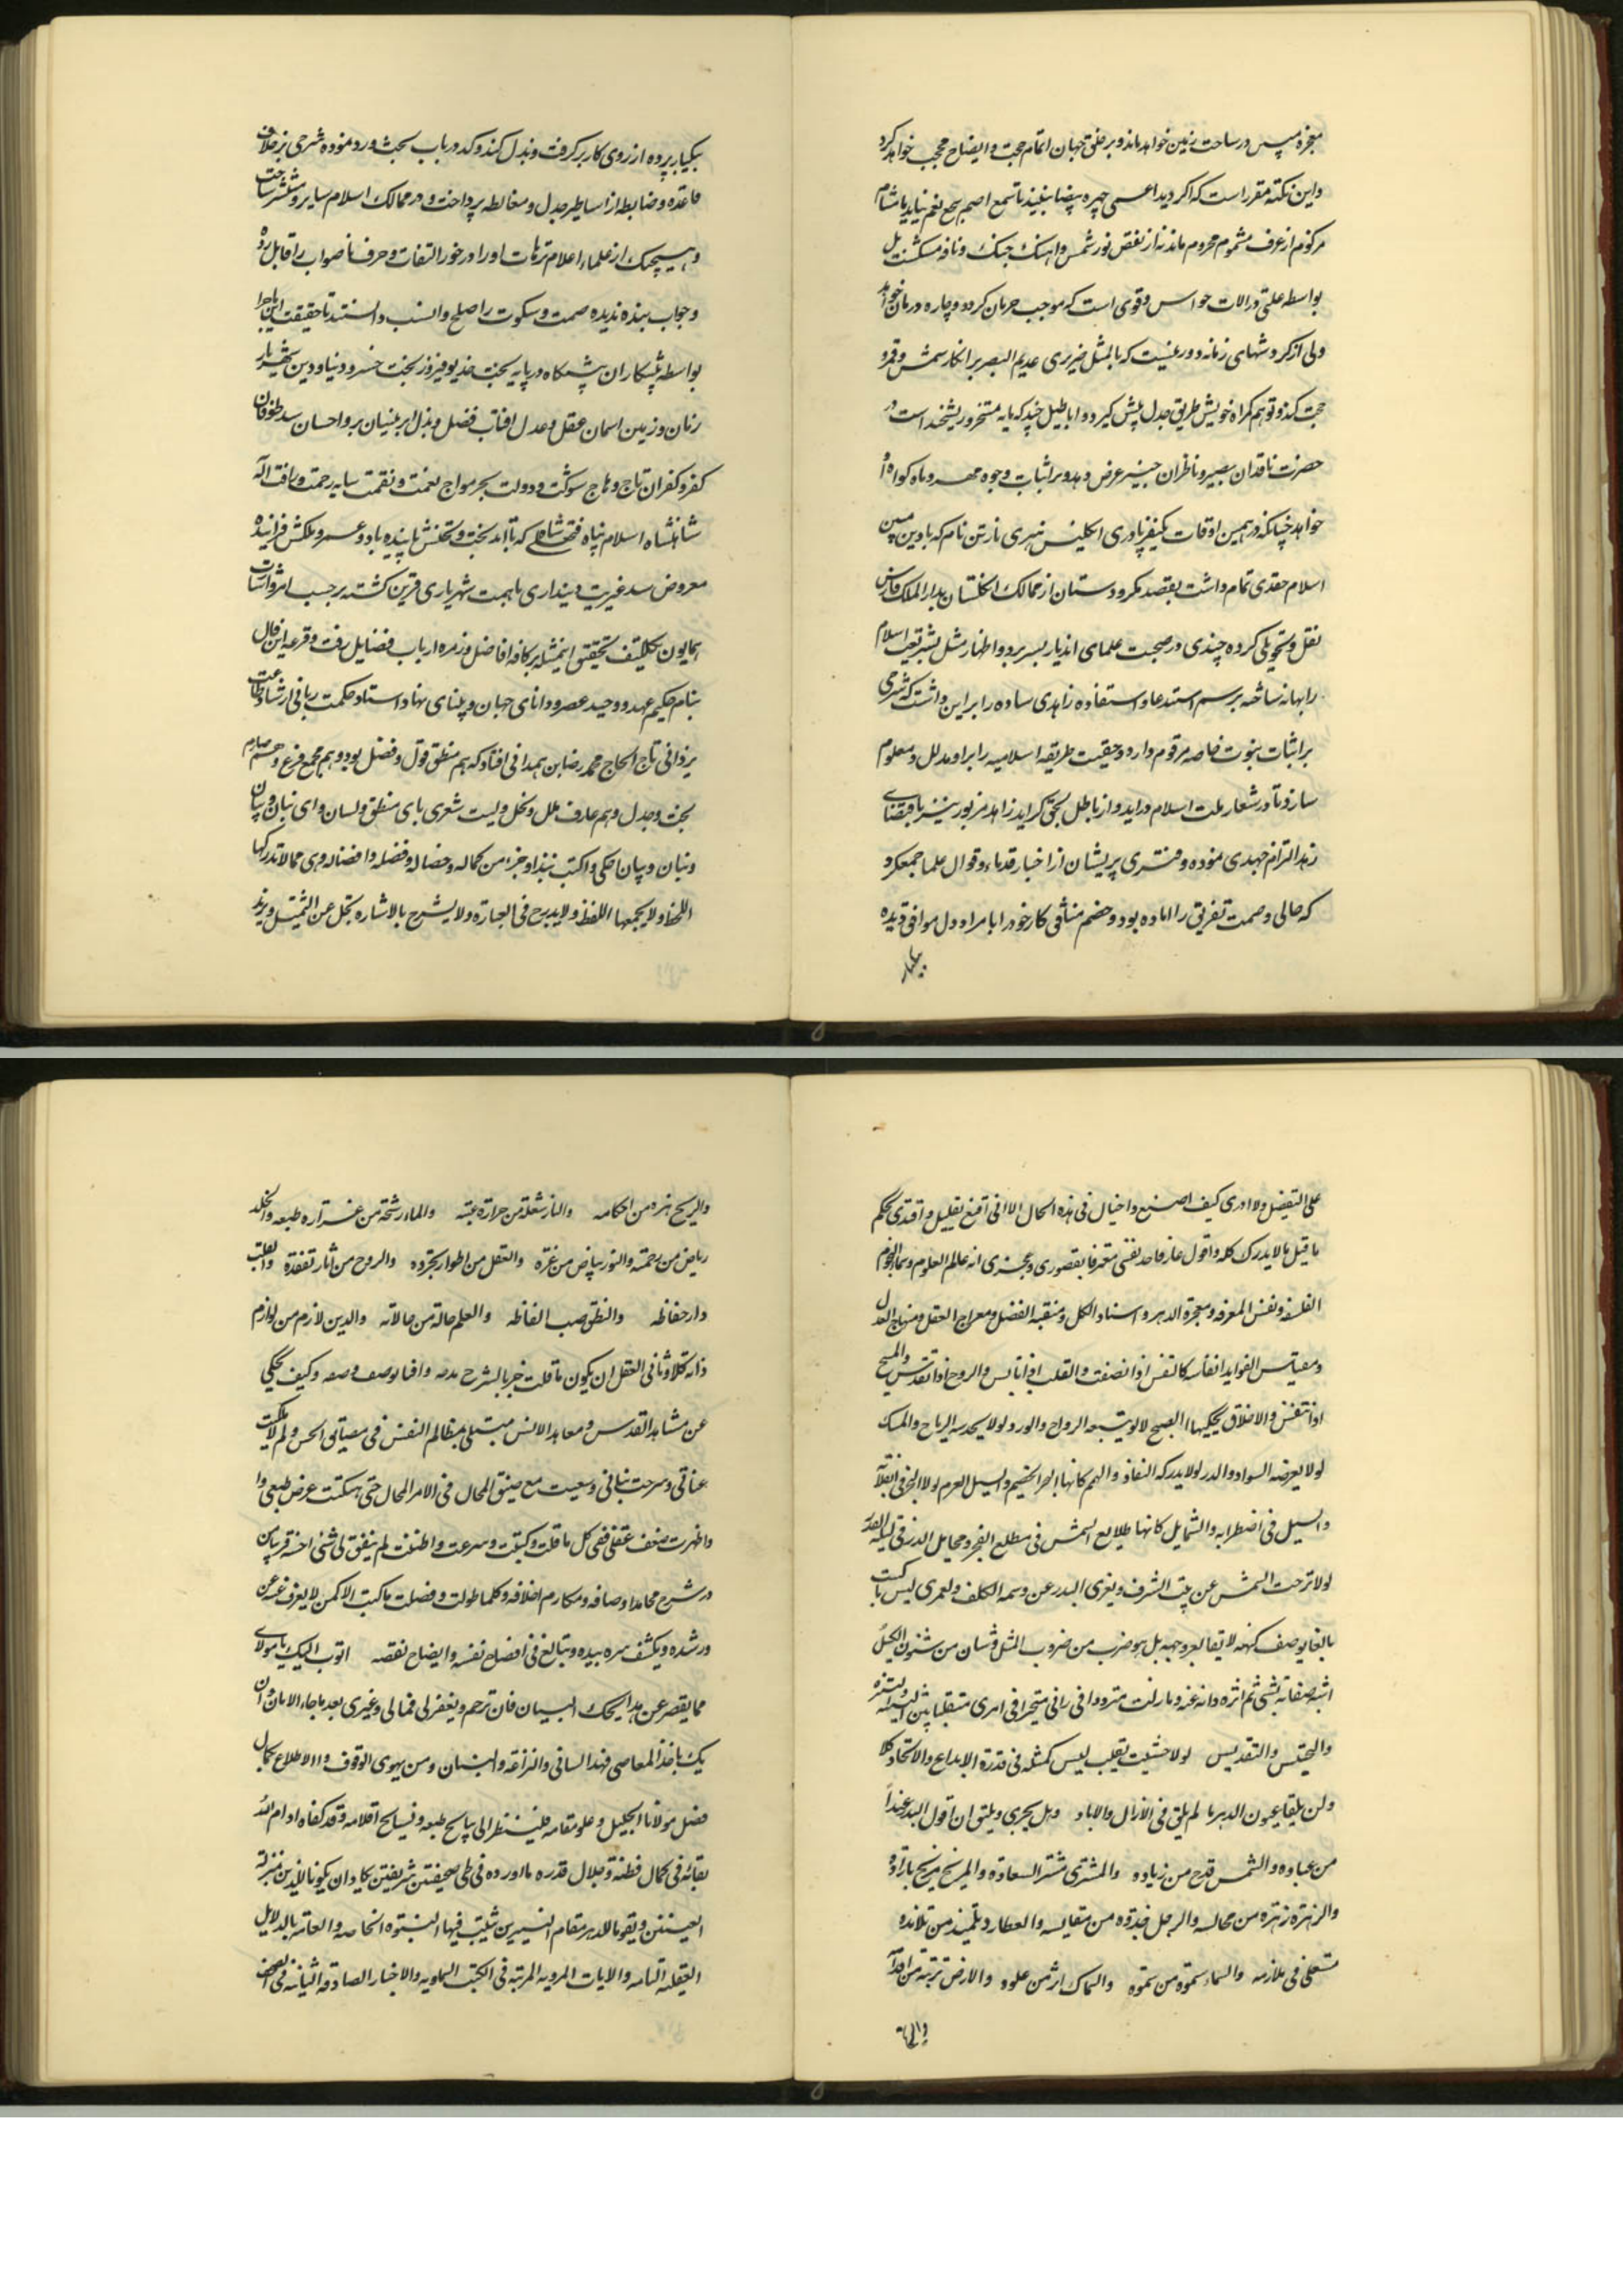 معجزه سپس در ساحت زمین خواهد ماند و بر خلق جهان اتمام حجت و ایضاح محجب خواهد کرد
و این نکته مقرر است که اگر دید اعمی چهره بیضا نبیند تا سمع اصم بجمع نغم نیاید یا مشام
مزکوم از عرف مشموم محروم ماند نه از نقص نور شمس و اهنک چنک و نافه مشکست بل
بواسطه علتی در الات حواس و قوی است که موجب حرمان کردد و چاره و درمان خواهد
ولی از کردشهای زمانه دور نیست که بالمثل ضریری عدیم البصر بر انکار شمس و قمر و
حجت کند و توهم کمراه خویش طریق جدل پیش کیرد و اباطیل چند که مایه تمسخر و ریشخند است در
حضرت ناقدان بصیر و ناظران خبیر عرض دهد و بر اثبات وجوه مهر و ماه کواه او
خواهد چنانکه در همین اوقات یکنفر پادری انکلیس هنری مارتن نام که با دین مبین
اسلام حقدی تمام داشت بقصد مکر و دستان از ممالک انکلستان بدار الملک فارس
نقل و تحویلی کرده چندی در صحبت علمای اندیار بسر برد و اظهار میل بشریعت اسلام
را بهانه ساخته برسم استدعا و استفاده زاهدی ساده را بر این داشت که شرحی
بر اثبات نبوت خاصه مرقوم دارد و حقیقت طریقه اسلامیه را بر او مدلل و معلوم
سازد تا در شعار ملت اسلام در اید و از باطل بحق کراید زاهد مزبور نیز باقتضای
زهد التزام جهدی نموده و دفتری پریشان از اخبار قدماء و اقوال علما جمع کرد
که حالی وصمت تفریق را اماده بود و خصم منافق کار خود را با مراد دل موافق دیده
یکبار
بیکبار پرده از روی کار بر کرفت و بذل کند و کد در باب بحث و رد نموده شرحی بر خلاف
قاعده و ضابطه از اساطیر جدل و مغالطه پرداخت و در ممالک اسلام سایر و منتشر ساخت
و هیچیک از علماء اعلام ترهات او را در خور التفات و حرف ناصواب را قابل رد
و جواب ننده ندیده صمت و سکوت را اصلح و انسب دانستند تا حقیقت این ماجرا
بواسطه پیشکاران پیشکاه در پایه تخت خدیو فیروز بخت خسرو دنیا و دین شهریار
زمان و زمین اسمان عقل و عدل افتاب فضل و بذل ابر نیسان بر و احسان سد طوفان
کفر و کفران تاج و هاج شوکت و دولت بحر مواج نعمت و نقمت سایه رحمت و رافت اله
شاهنشاه اسلام پناه فتحعلی شاه که تا ابد بخت و تختش پاینده باد و عمر و ملکش فزاینده
معروض شد غیرت دینداری با همت شهریاری قرین کشته بر حسب امر و اشارت
همایون تکلیف تحقیق اینمسئله بر کافه افاضل و زمره ارباب فضایل رفت و قرعه این فال
بنام حکیم عهد و وحید عصر و دانای جهان و بینای نهاد استاد حکمت ربانی ارشاد طاعت
یزدانی تاج الحاج محمد رضا بن همدانی افتاد که هم منطق قول و فضل بود و هم مجمع فرع و اصل هم صارم
بحث و جدل و هم عارف ملل و نحل ولیت شعری بای منطق و لسان و ای بنان و بیان
و بنان و بیان احکی و اکتب نبذا و جزء من کماله و خصاله و فضله و افضاله و هی مما لا تدرکها
اللحاظ و لا یجمعها اللفظ و لا یدرج فی العبارة و لا یشرح بالاشاره یجل عن التمثیل و یزید
علی التفضیل و لا ادری کیف اصنع و احتیال فی هذه الحال الا انی اقنع بقلیل و اقتدی بحکم
ما قیل ما لا یدرک کله و اقول عازفا حد نفسی معترفا بقصوری و عجزی انه عالم العلوم و سماء النجوم
الفلسفه و نفس المعرفه و معجزة الدهر و استاد الکل و منقبة الفضل و معراج العقل و منهاج العدل
و مقیاس الفواید انفاسه کالنفس اذا نصفت و القلب اذا انابس و الروح اذا تقدس و المسیح
اذا تنفس و الاخلاق یحکیها الصبح لا لوتسبعه الرواح و الورد لولا یحدسه الریاح و المسک
لولا یعرضه السواد و الدر لولا یدرکه النفاذ و الهم کانها البحر الخضم و السیل العرم لولا البحر فی انقلابه
و السیل فی اضطرابه و الشمایل کانها طلایع الشمس فی مطلع الفجر و محایل البدر فی لیلة القدر
لولا تزحت الشمس عن بیت الشرف و یعری البدر عن وسمه الکلف و لعمری لیس ما کتبت
بالغا یوصف کنهه لا یقابل بوجهه بل هو ضرب من ضروب المثل و شان من شئون الحیل
اشبه صفاته بشئ ثم انزه ذاته عنه و مازلت مترددا فی رائی متحیرا فی امری متقلبا بین التشبیه و التنزیه
و التجنیس و التقدیس لولا خشیت بقلب لیس کمثله فی قدرة الابداع و الاتحاد کلا
و لن یلقا عیون الدهر ما لم یلق فی الازال و الاباد و هل یجری و یلیق ان اقول البدر عبدا
من عباده و الشمس قدح من زیاده و المشتری مشتر السعادة و المریخ مریخ باراده
و الزهره زهره من مجالسه و الزحل فدوه من مقالیسه و العطارد تلمیذ من تلامذه
مستعلی فی ملازمه و السماء سمّوه من سمّوه و السماک اثر من علوه و الارض تربة من اقدامه
و الریاح
و الریح نبره من احکامه و النار شعلة من حرارة عینه و الماء رشحة من غزاره طبعه و الخلد
ریاض من رحمته و النور بیاض من غرّه و العقل من اطوار تجرده و الروح من اثار تفقده و القلب
دار حفاظه و النطق نصب الفاظه و العلم حالة من حالاته و الدین لازم من لوازم
ذاته کلا و ثنا فی العقل ان یکون ما قلت خبرا لشرح مدحه و افیا بوصف وصفه و کیف یحکی
عن مشاهد القدس و معاهد الانس مبتلی بمظالم النفس فی مضائق الحس و لم لا املکت
عنانی و سرحت بنانی و سعیت مع ضیق المجال فی الامر المحال حتی هتکت عرض طبعی و ا
و اظهرت ضعف عقلی ففی کل ما قلت و کتبت و سرعت و اطنبت لم ینفق لی شئ اخسه قریبا من
در شرح محامد اوصافه و مکارم اخلاقه و کلما طولت و فصلت ما کنت الا کمن لا یعرف غیه عن
و رشده و یکشف سره بیده و یبالغ فی افضاح نفسه و ایضاح نقصه اتوب الیک یا مولای
مما یقصر عن مدایحک البیان فان ترحم و یغفر لی فمالی و غیری بعد ما جاء الامان و ان
یک باخذ المعاصی فهذا لسانی و النزاعة و البنان و من یهوی الوقوف و الاطلاع بکمال
فضل مولانا الجلیل و علو مقامه فلینظر الی نبایح طبعه و نسایج اقلامه و قد کفاه ادام الله
بقائه فی کمال فطنه و جلال قدره ما اورده فی طی صحیفتین شریفتین یکادان یکونا للدین بمنزلة
العینین و یقوما للدهر مقام النیرین یثبت فیها النبتوه الخاصه و العامه بالدلایل
العقلیه التامه و الایات المرویه المرتبه فی الکتب السماویه و الاخبار الصادقه الثابته فی الصحف